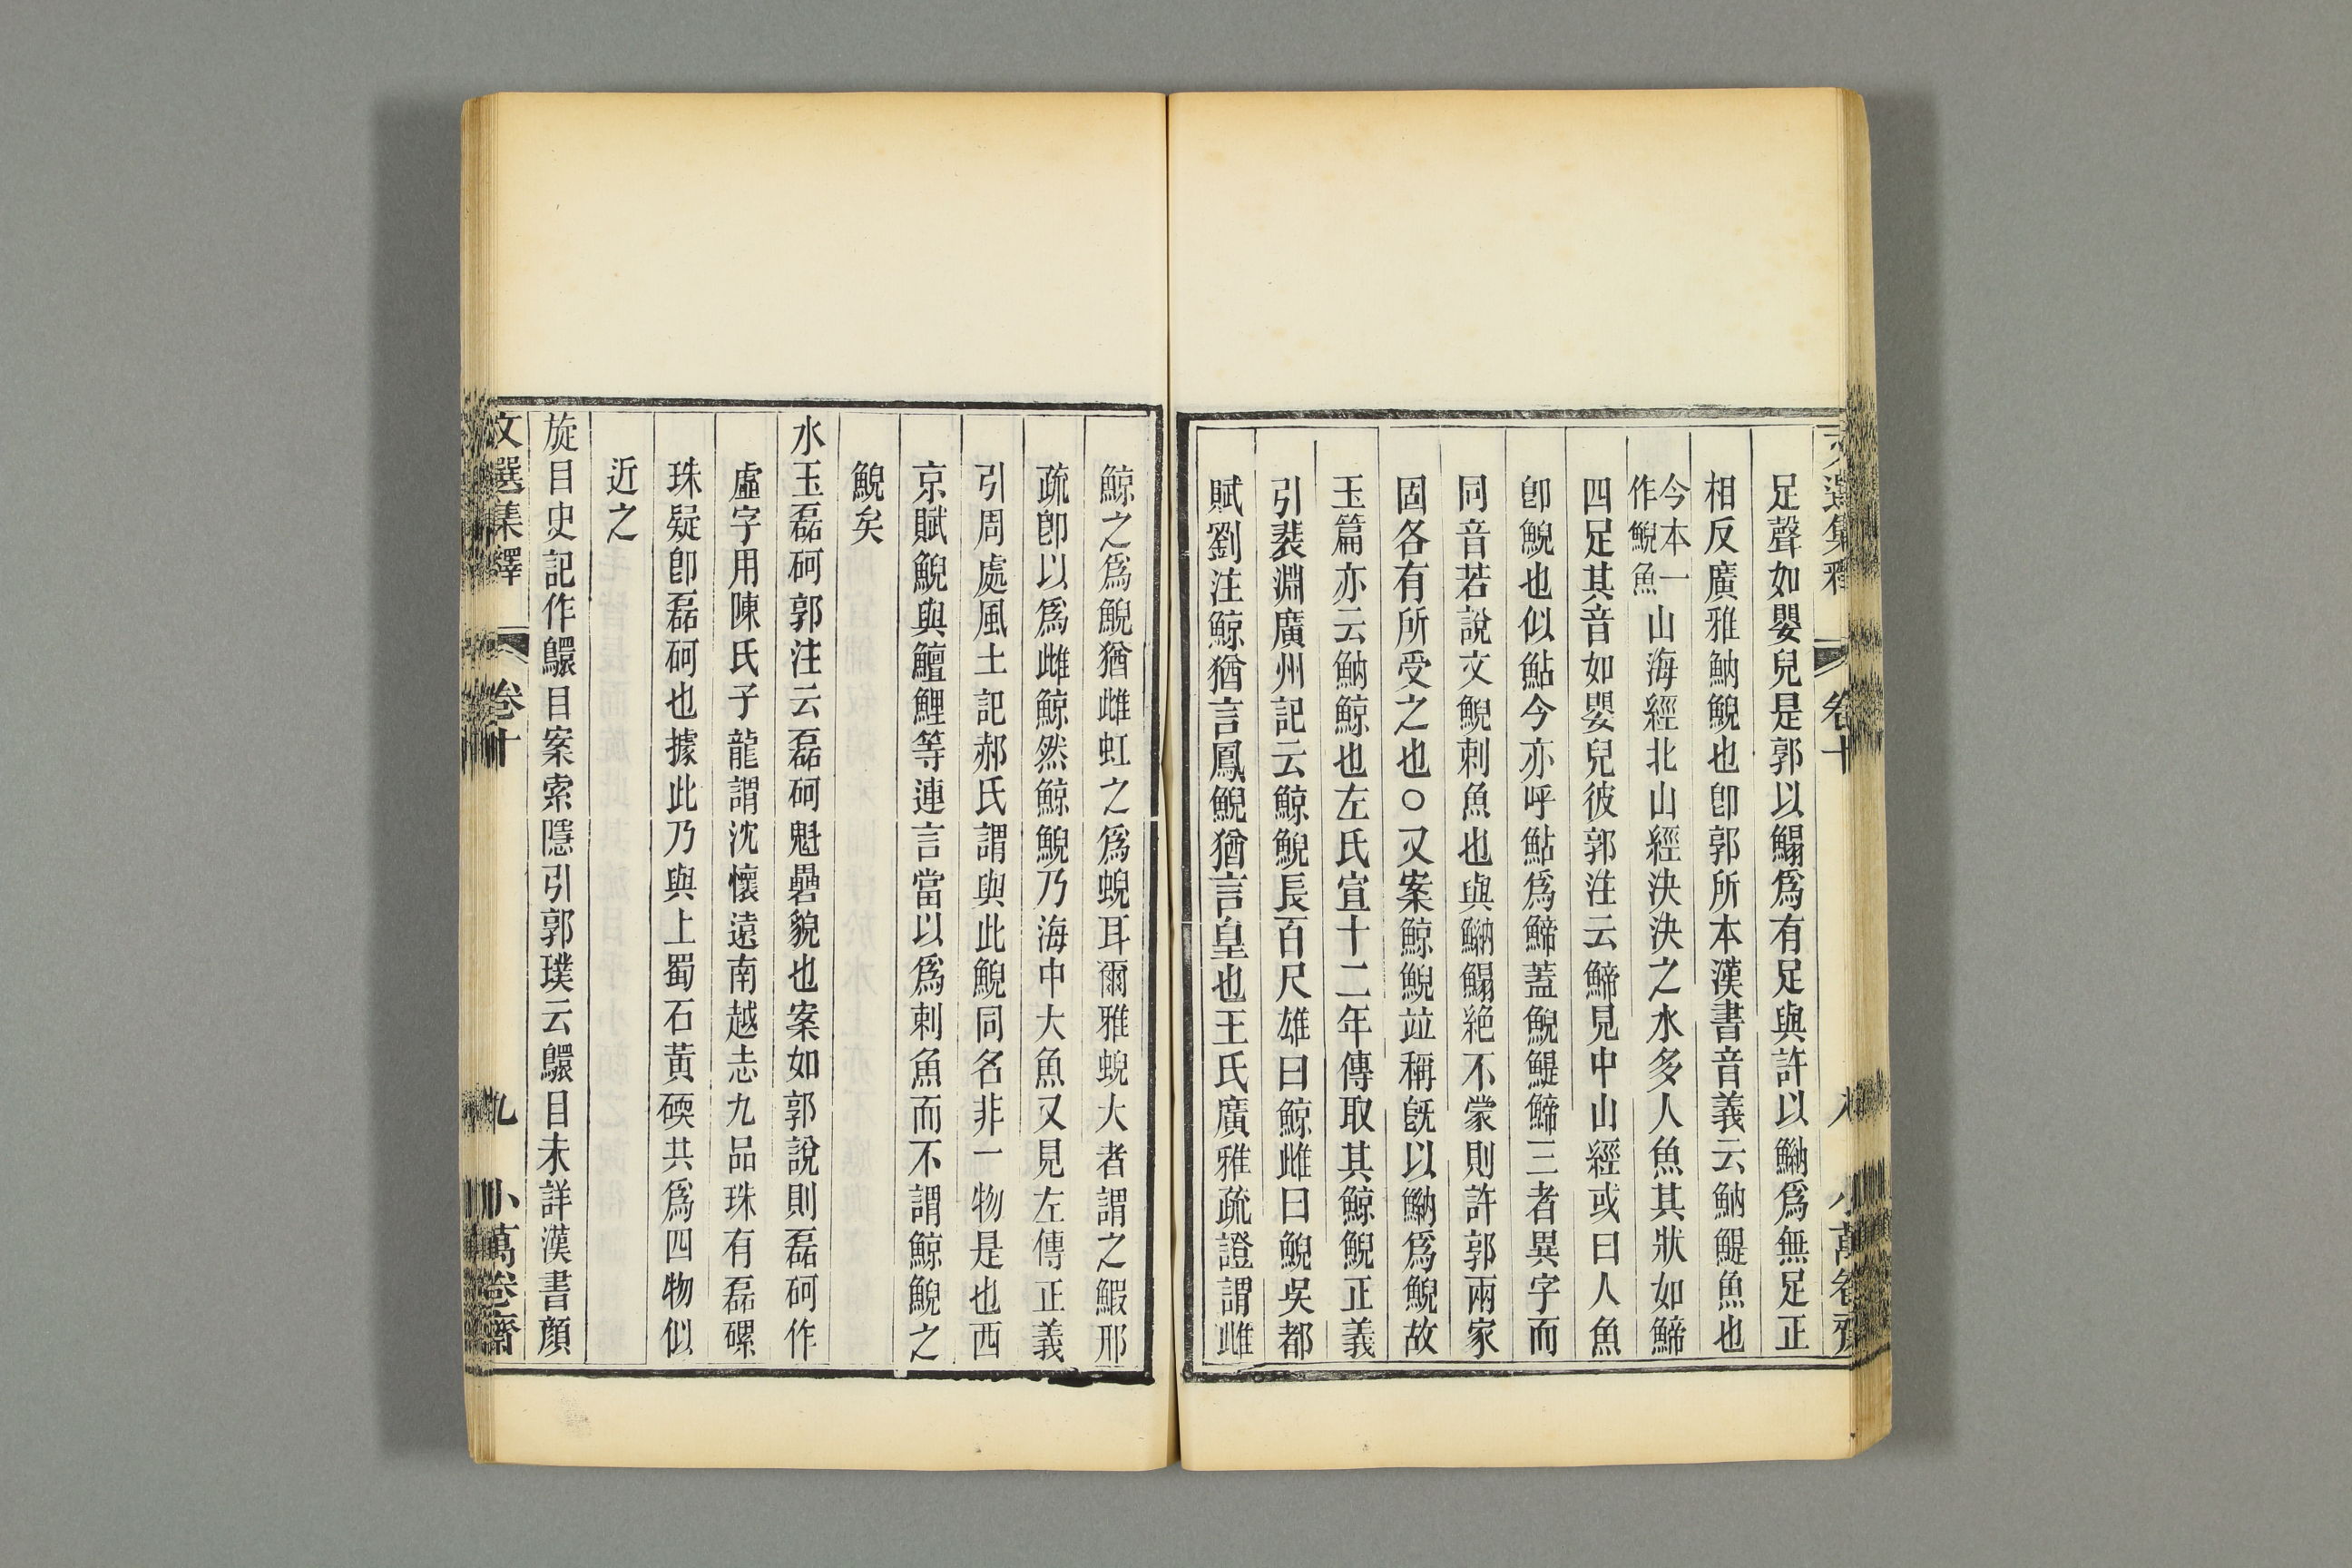 足聲如嬰兒是郭以鰨爲有足與許以魶爲無足正
相反廣雅魶鯢也卽郭所本漢書音義云魶鯷魚也
今本一
作鯢魚
山海經北山經決決之水多人魚其狀如䱱
四足其音如嬰兒彼郭注云䱱見中山經或曰人魚
卽鯢也似鮎今亦呼鮎爲䱱蓋鯢鯷䱱三者異字而
同音若說文鯢刺魚也與魶鰨絶不蒙則許郭兩家
固各有所受之也○又案鯨鯢竝稱旣以魶爲鯢故
玉篇亦云魶鯨也左氏宣十二年傳取其鯨鯢正義
引裴淵廣州記云鯨鯢長百尺雄曰鯨雌曰鯢吳都
賦劉注鯨猶言鳳鯢猶言皇也王氏廣雅疏證謂雌
鯨之爲鯢猶雌虹之爲蜺耳爾雅蜺大者謂之鰕邢
疏卽以爲雌鯨然鯨鯢乃海中大魚又見左傳正義
引周處風土記郝氏謂與此鯢同名非一物是也西
京賦鯢與鱣鯉等連言當以爲刺魚而不謂鯨鯢之
鯢矣
水玉磊砢郭注云磊砢魁礨貌也案如郭說則磊砢作
虛字用陳氏子龍謂沈懷遠南越志九品珠有磊磥
珠疑卽磊砢也據此乃與上蜀石黃碝共爲四物似
近之
旋目史記作䴉目案索隱引郭璞云䴉目未詳漢書顏
文選集釋 卷十 九 小萬卷齋